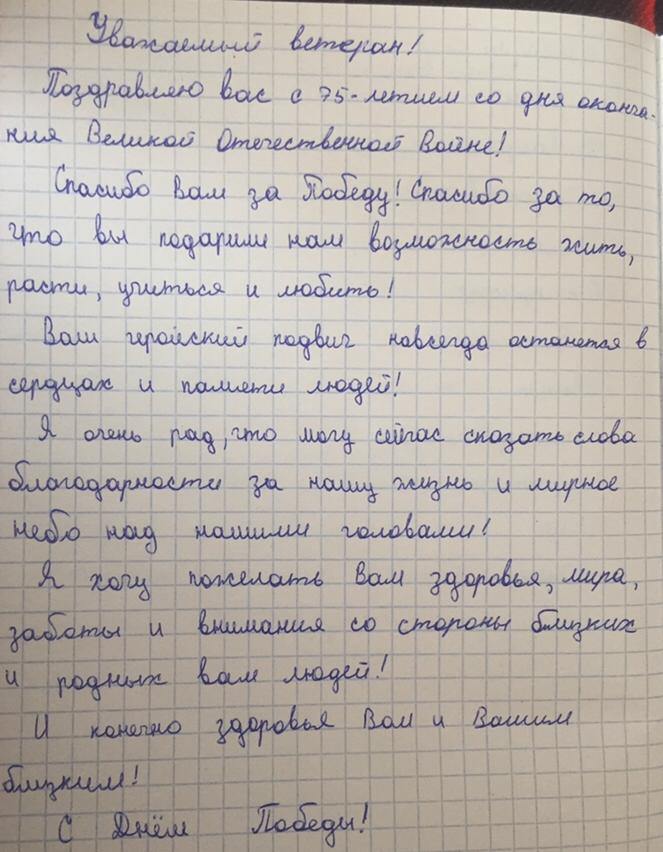 Уважаемый ветеран!
Поздравляю вас с 75-летием со дня оконча-
ния Великой Отечественной Войне!
Спасибо Вам за Победу! Спасибо за то,
что вы подарили нам возможность жить,
расти, учиться и любить!
Ваш геройский подвиг навсегда останется в
сердцах и памяти людей!
Я очень рад, что могу сейчас сказать слова
благодарности за нашу жизнь и мирное
небо над нашими головами!
Я хочу пожелать Вам здоровья, мира,
заботы и внимания со стороны близких
и родных вам людей!
И конечно здоровья Вам и Вашим
близким!
С Днём Победы!